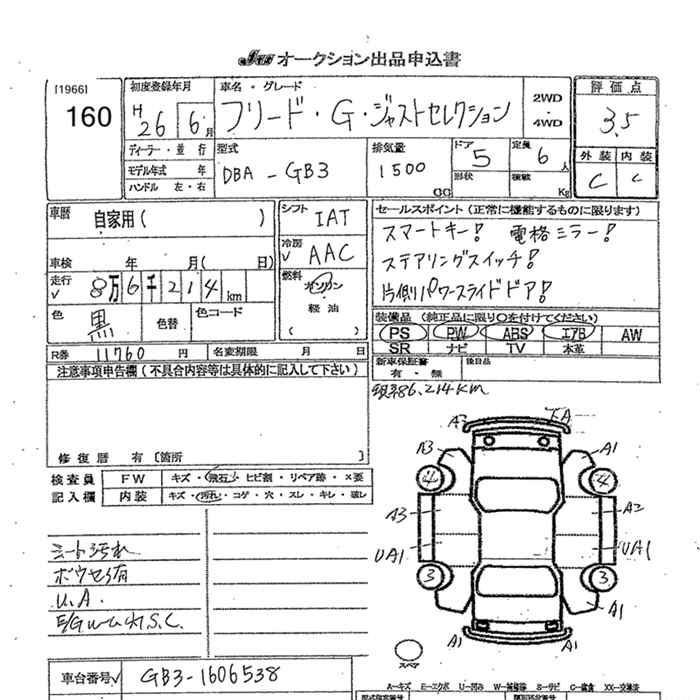 オークション出品申込書
[1966]
160
初度登録年月
H 26 6月
車名・グレード
フリード・G・ジャストセレクション
2WD
4WD
評価点
3.5
ディーラー・並行
モデル年式 年
ハンドル 左・右
型式
DBA-GB3
排気量
1500
CC
ドア
5
形状
定員
6人
積載
Kg
外装 内装
C C
車歴
自家用( )
車検 年 月( 日)
走行
8万6千214km
色
黒
色替
色コード
R券 11760円
名変期限 月 日
シフト
IAT
冷房
AAC
燃料
ガソリン
軽油
( )
セールスポイント(正常に機能するものに限ります)
スマートキー! 電格ミラー!
ステアリングスイッチ!
片側パワースライドドア!
装備品(純正品に限り○を付けてください)
PS PW ABS エアB AW
SR ナビ TV 本革
新車保証書
有・無
後日品
現系86,214KM
注意事項申告欄(不具合内容等は具体的に記入して下さい)
修復歴 有〔箇所
検査員
記入欄
FW
キズ・飛石・ヒビ割・リペア跡・×要
内装
キズ・汚れ・コゲ・穴・スレ・キレ・破レ
シート汚れ
ボウセイ有
U.A.
E/Gルーム内S.C.
A2 下A
A3 A1
4 4
A3 A2
UA1 UA1
3 3
A1
A1 A1
スペア
車台番号
GB3-1606538
A=キズ E=エクボ U=凹み W=補修跡 S=サビ C=腐食 XX=交換済
型式指定番号